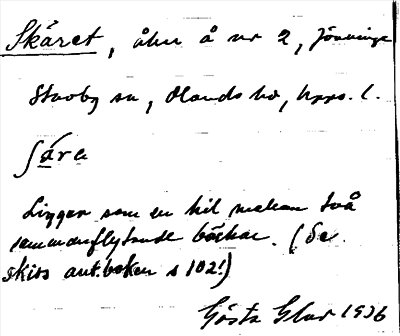 Skäret, åker å nr 2, Jönninge
Stavby sn, Olands hd, Upps. l.
ʃä̀ra
Ligger som en kil mellan två
sammanflytande bäckar. (Se
skiss ant.boken s 102!)
Gösta Glad 1936